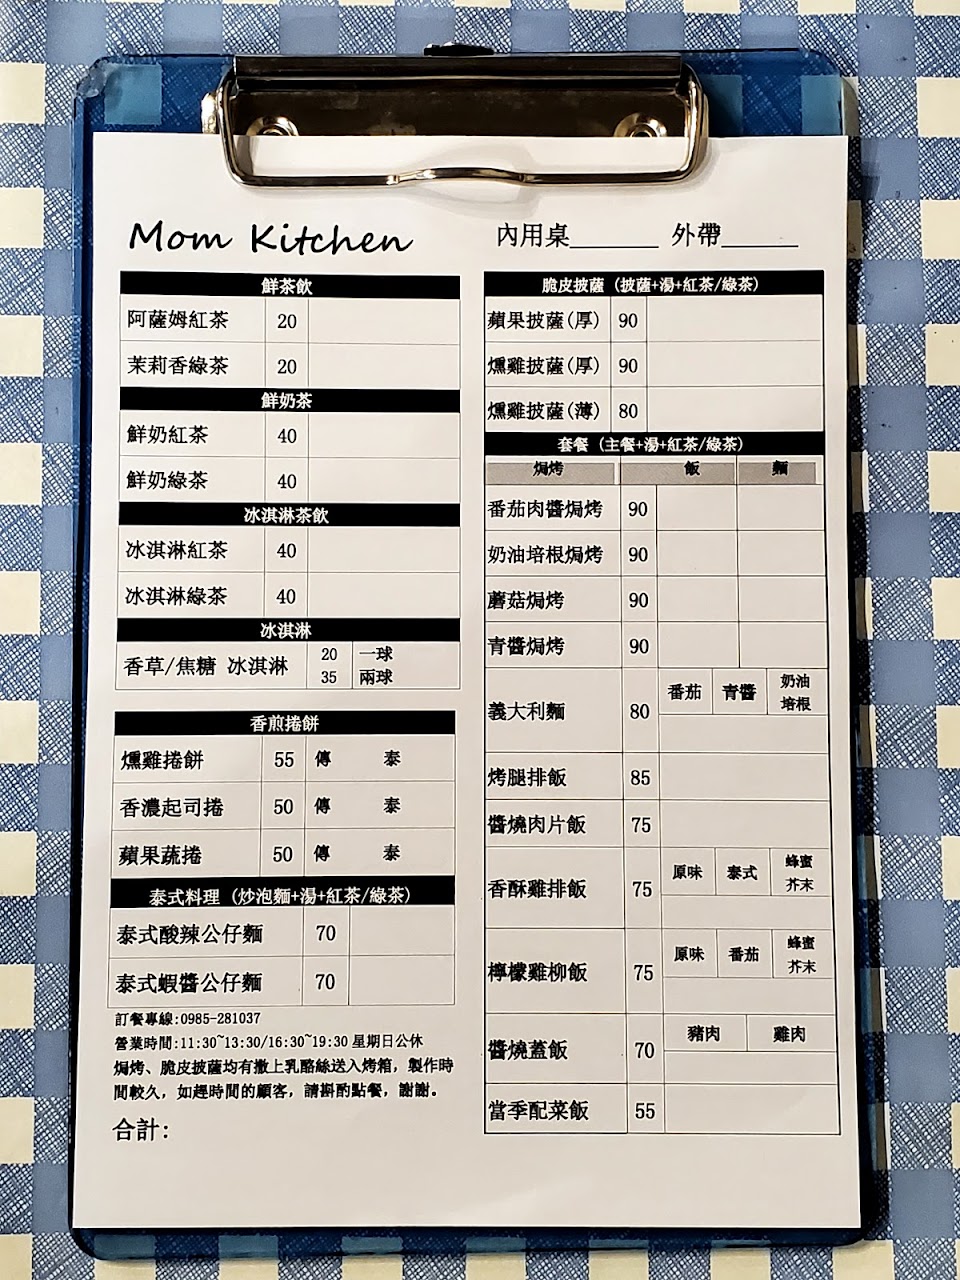 Mom Kitchen
內用桌______ 外帶______
鮮茶飲
阿薩姆紅茶 20
茉莉香綠茶 20
鮮奶茶
鮮奶紅茶 40
鮮奶綠茶 40
冰淇淋茶飲
冰淇淋紅茶 40
冰淇淋綠茶 40
冰淇淋
香草/焦糖 冰淇淋 20 一球
35 兩球
香煎捲餅
燻雞捲餅 55 傳 泰
香濃起司捲 50 傳 泰
蘋果蔬捲 50 傳 泰
泰式料理 (炒泡麵+湯+紅茶/綠茶)
泰式酸辣公仔麵 70
泰式蝦醬公仔麵 70
訂餐專線:0985-281037
營業時間:11:30~13:30/16:30~19:30 星期日公休
焗烤、脆皮披薩均有撒上乳酪絲送入烤箱，製作時
間較久，如趕時間的顧客，請斟酌點餐，謝謝。
合計:
脆皮披薩 (披薩+湯+紅茶/綠茶)
蘋果披薩(厚) 90
燻雞披薩(厚) 90
燻雞披薩(薄) 80
套餐 (主餐+湯+紅茶/綠茶)
焗烤 飯 麵
番茄肉醬焗烤 90
奶油培根焗烤 90
蘑菇焗烤 90
青醬焗烤 90
義大利麵 80 番茄 青醬 奶油
培根
烤腿排飯 85
醬燒肉片飯 75
香酥雞排飯 75 原味 泰式 蜂蜜
芥末
檸檬雞柳飯 75 原味 番茄 蜂蜜
芥末
醬燒蓋飯 70 豬肉 雞肉
當季配菜飯 55